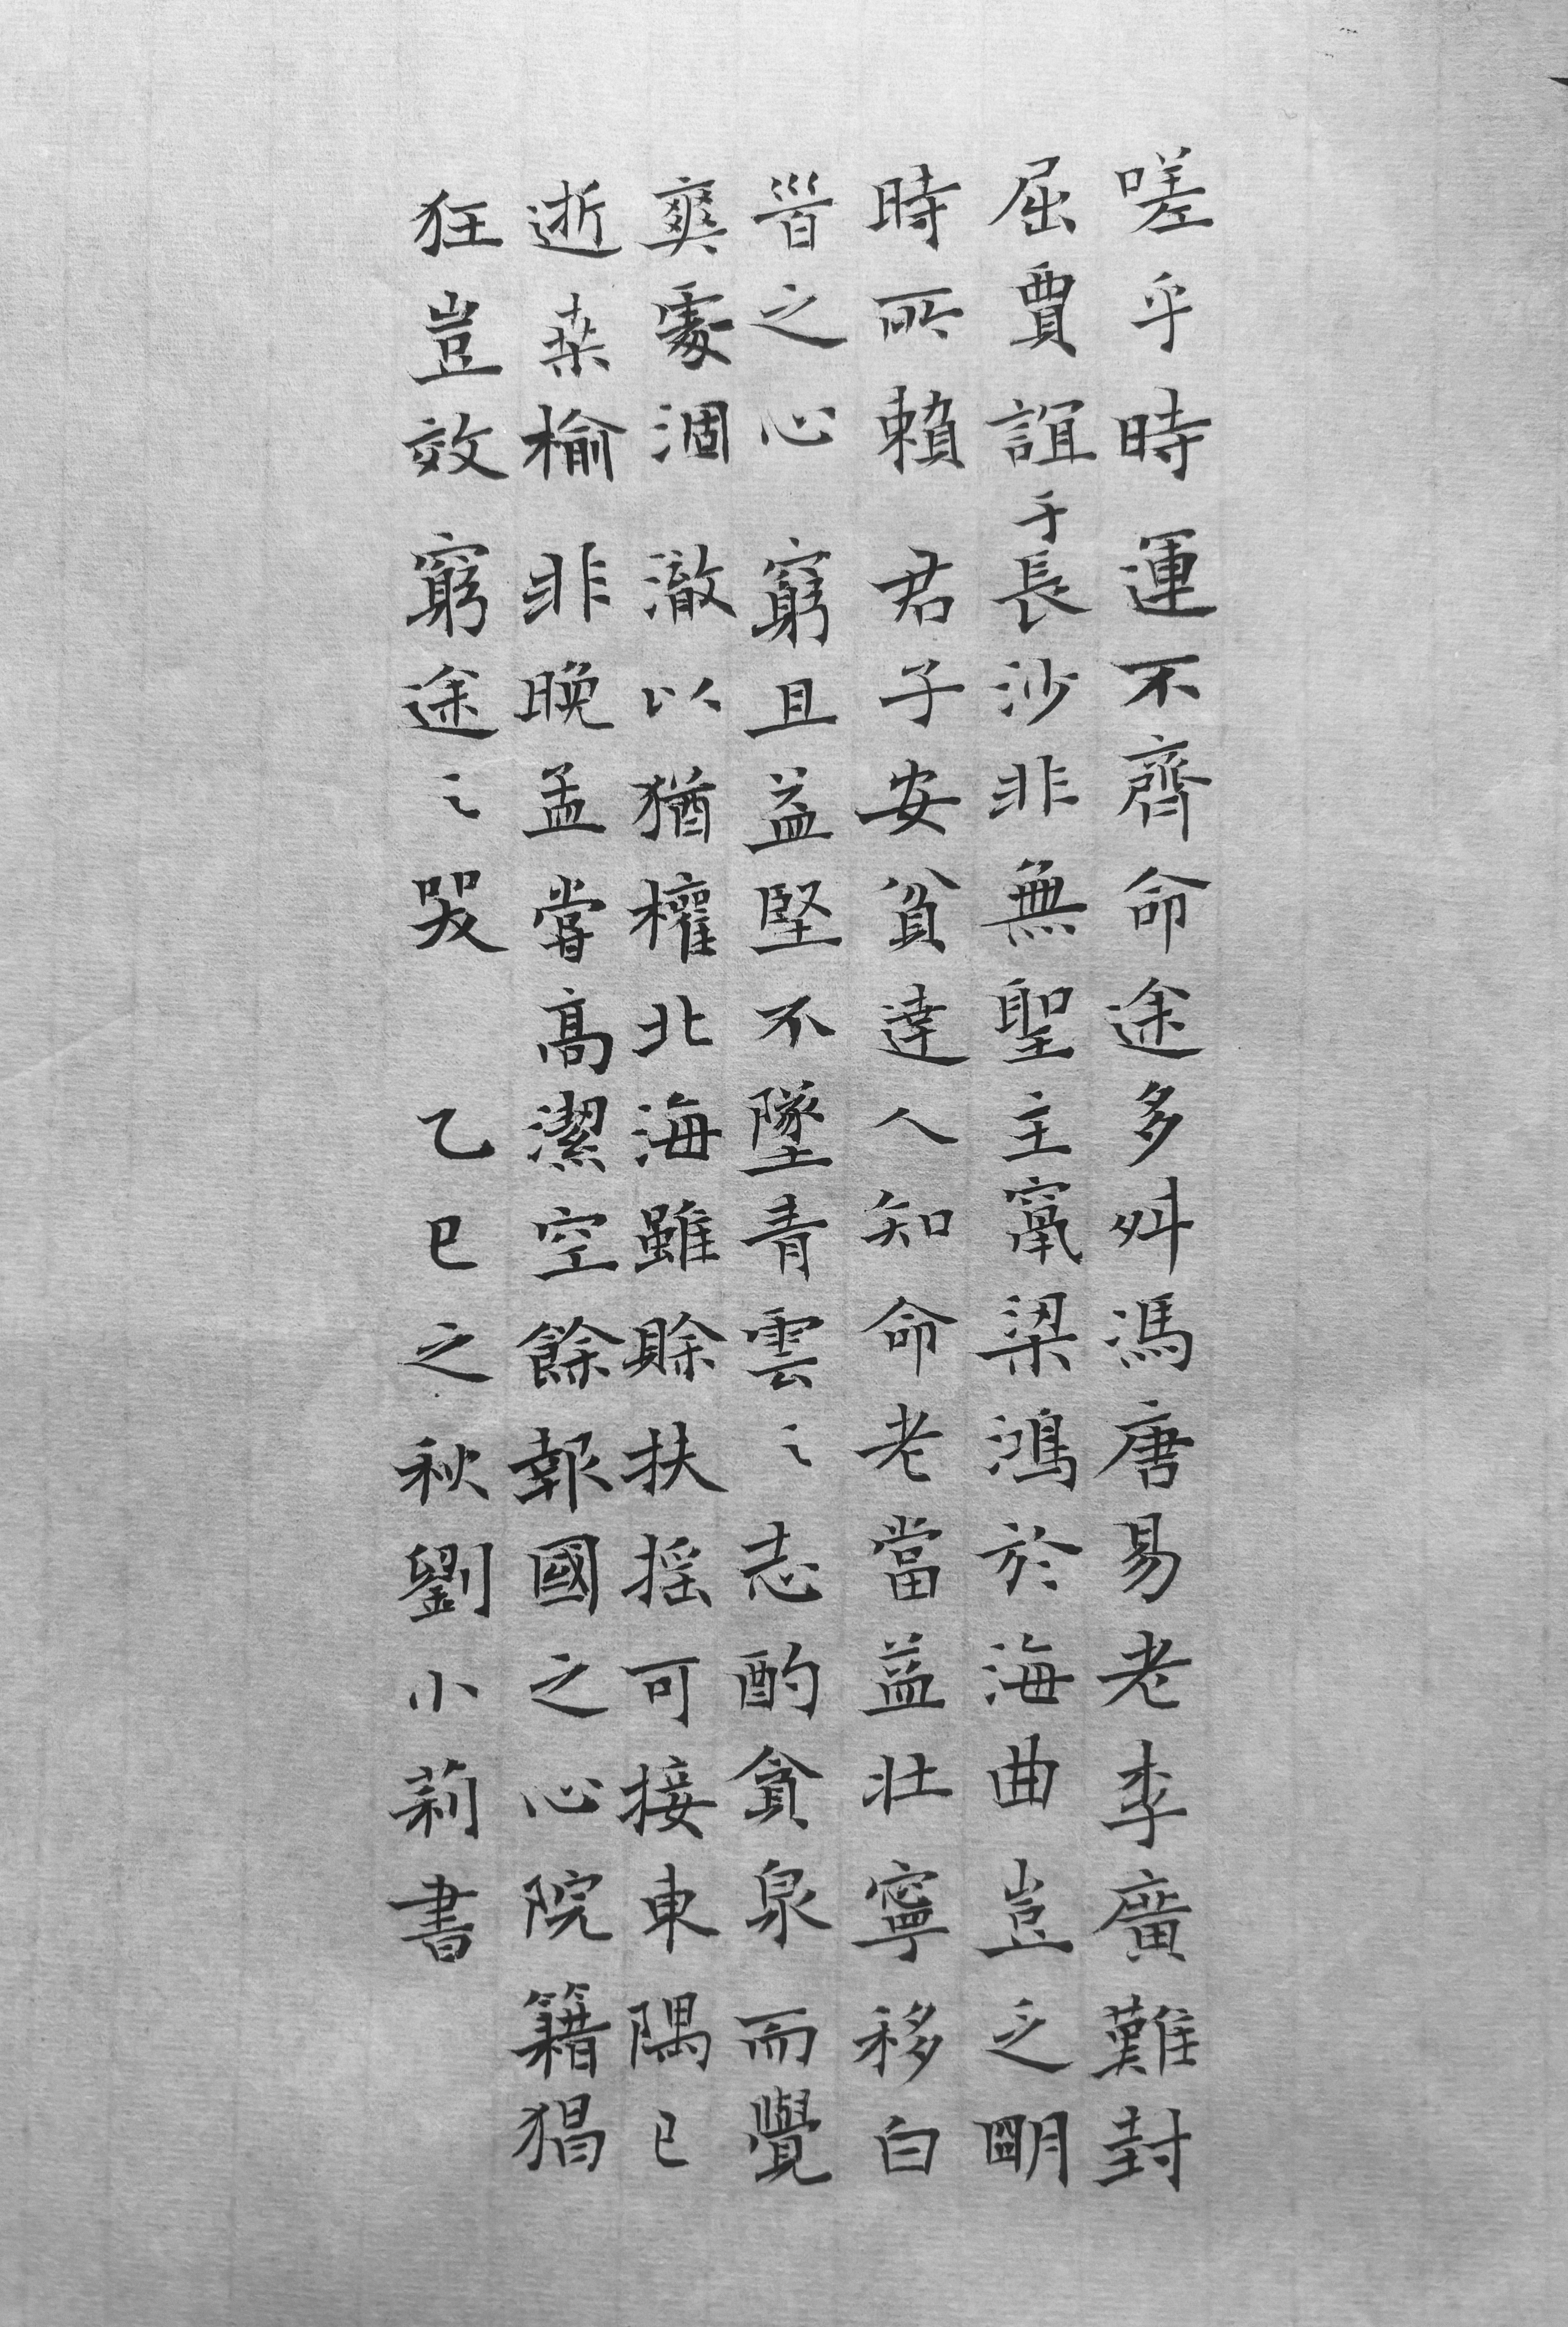 嗟乎時運不齊命途多舛馮唐易老李廣難封
屈賈誼于長沙非無聖主竄梁鴻於海曲豈乏朙
時所賴君子安貧達人知命老當益壯寧移白
首之心窮且益堅不墜青雲之志酌貪泉而覺
爽處涸澈以猶權北海雖賒扶搖可接東隅已
逝桒榆非晚孟嘗髙潔空餘報國之心院籍猖
狂豈效窮途之哭 乙巳之秋劉小莉書